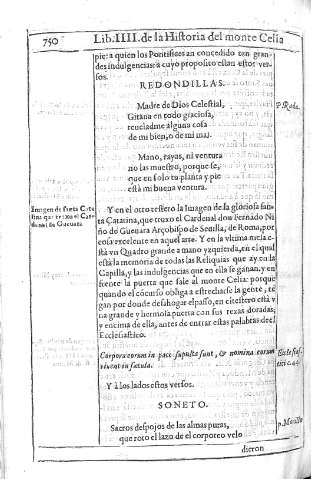 750 Lib. IIII. de la Historia del monte Celia
pie: a quien los Pontifices an concedido tan gran-
des indulgencias: a cuyo proposito estan estos ver-
sos.
REDONDILLAS.
Madre de Dios Celestial,
Gitana en todo graciosa,
reueladme alguna cosa
de mi bien, o de mi mal.
P. Roda.
Mano, rayas, ni ventura
no las muestro, porque se,
que en solo tu planta y pie
està mi buena ventura.
Imagen de santa Cata
lina que truxo el Car
denal de Gueuara.
Y en el otro testero la Imagen de la gloriosa san-
ta Catarina, que truxo el Cardenal don Fernando Ni
ño de Gueuara Arçobispo de Seuilla, de Roma, por
cosa excelente en aquel arte. Y en la vltima rica es
tà vn Quadro grande a mano yzquierda, en el qual
està la memoria de todas las Reliquias que ay en la
Capilla, y las indulgencias que en ella se ganan, y en
frente la puerta que sale al monte Celia: porque
quando el cócurso obliga a estrecharse la gente, té
gan por donde desahogar el passo, en este testero està v
na grande y hermosa puerta con sus rexas doradas;
y encima de ella, antes de entrar estas palabras del
Ecclesiastico.
Corpora eorum in pace sepulta sunt, & nomina eorum
viuent in sæcula.
Ecclesias
tici c. 44.
Y à los lados estos versos.
SONETO.
Sacros despojos de las almas puras,
que roto el lazo de el corporeo velo
P. Morillo
dieron